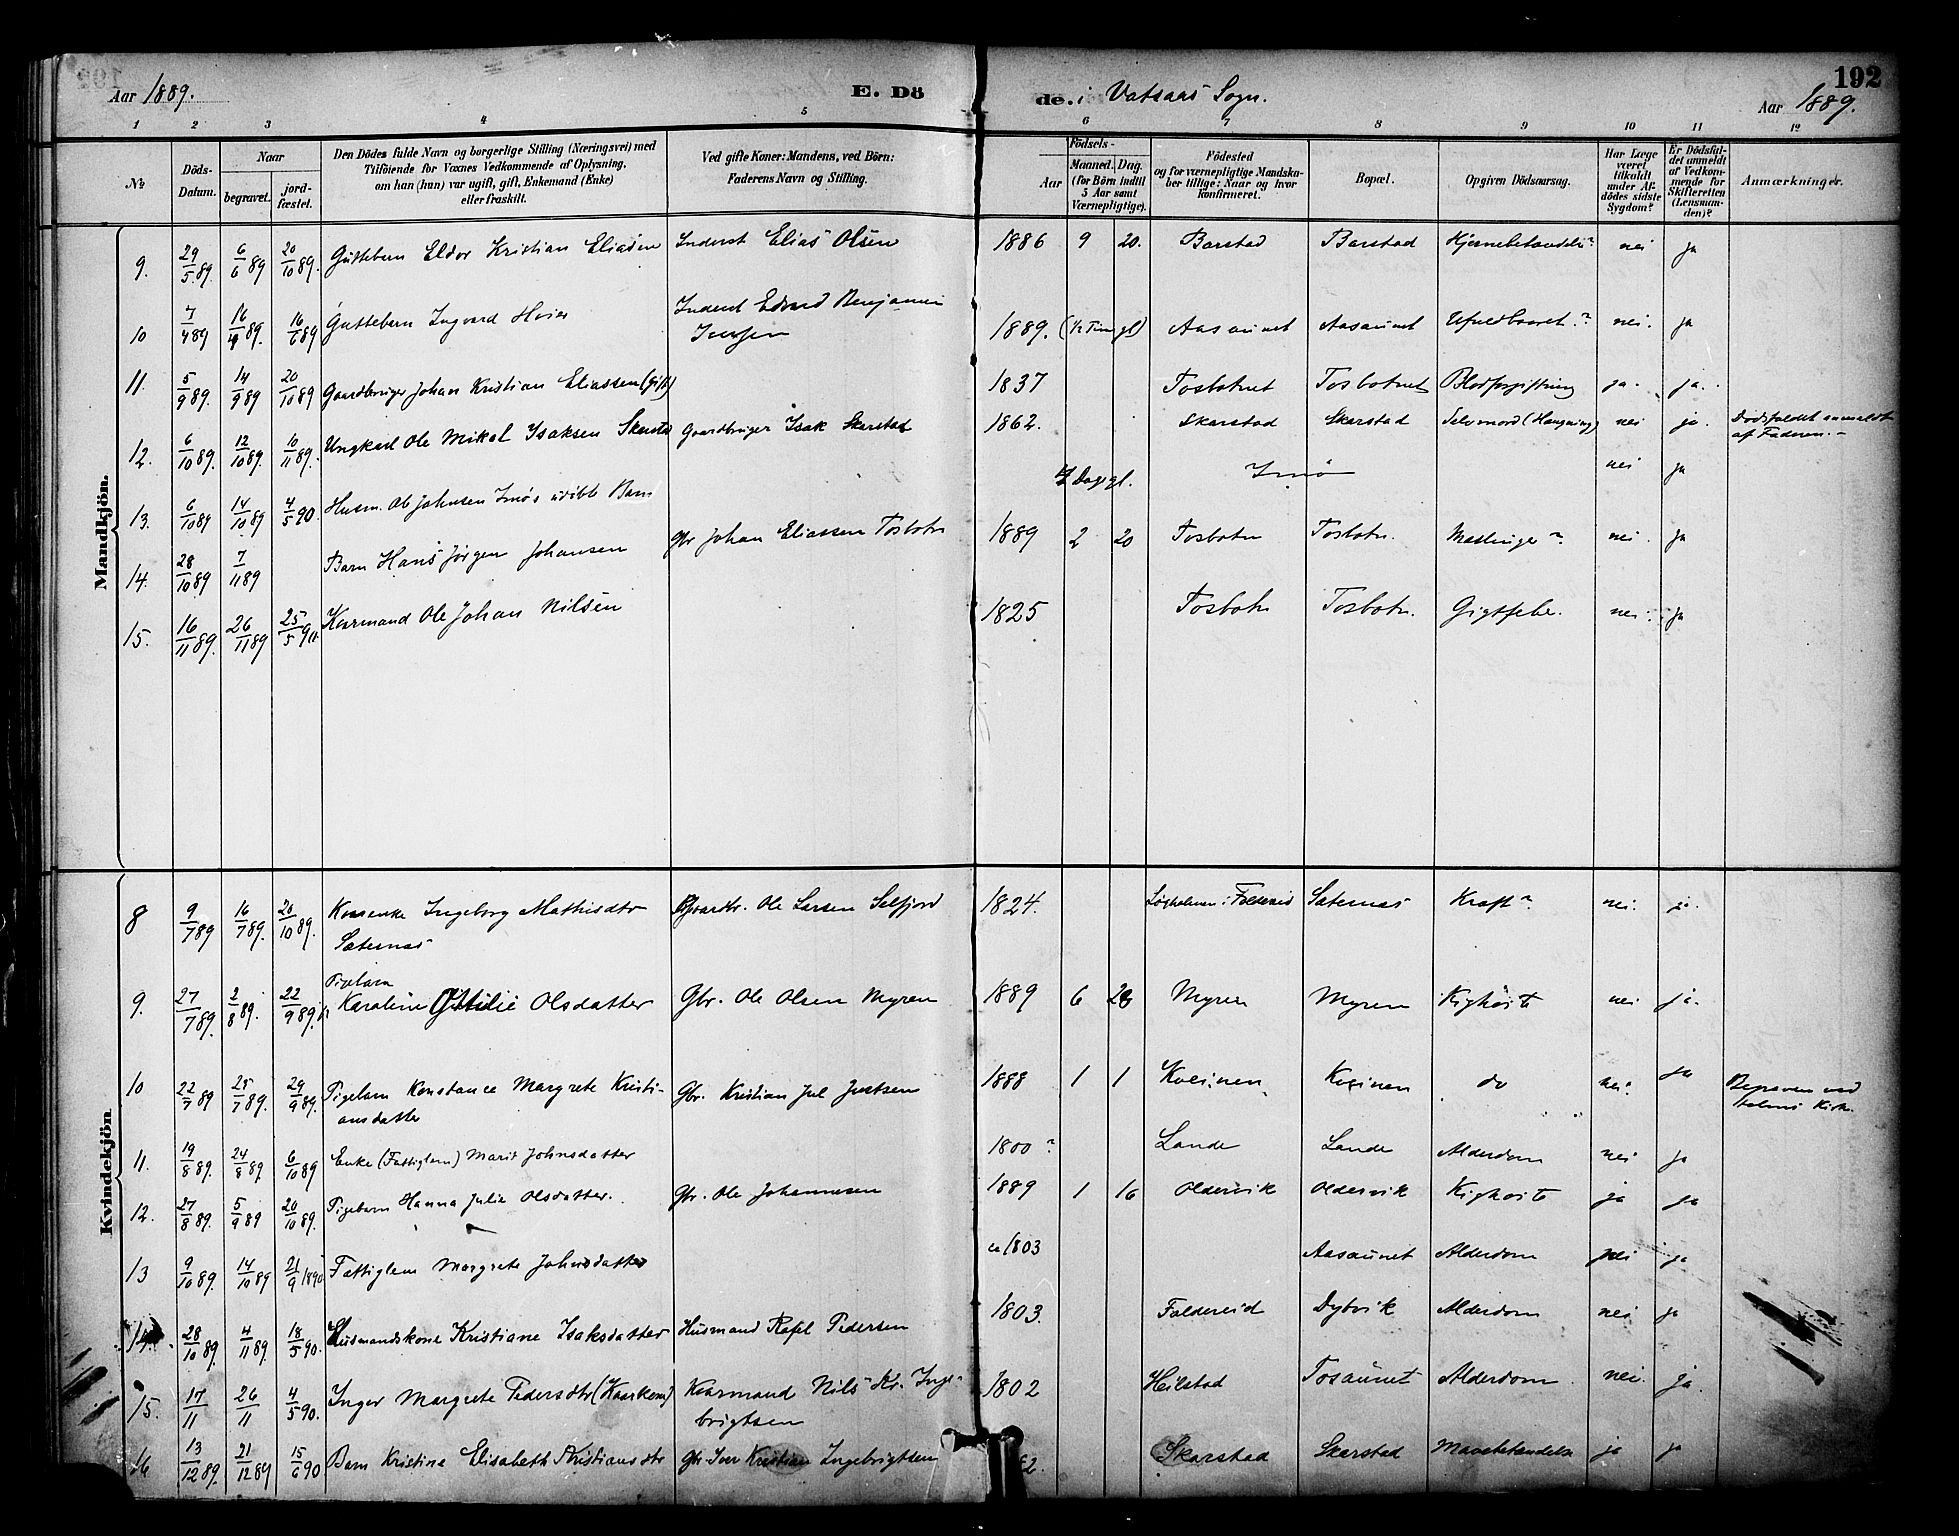 192
Aar 1889. E. Dö de. i Vatsaas Sogn. Aar 1889.
1 2 3 4 5 6 7 8 9 10 11 12
No Döds-Datum. Naar begravet. jord-fæstet.
Den Dödes fulde Navn og borgerlige Stilling (Næringsvei) med
Tilföiende for Voxnes Vedkommende af Oplysning,
om han (hun) var ugift, gift, Enkemand (Enke)
eller fraskilt.
Ved gifte Koner: Mandens, ved Börn:
Faderens Navn og Stilling.
Födsels-
Aar Maaned. Dag.
(for Börn indtil
5 Aar samt
Værnepligtige).
Födested
og for værnepligtige Mandska-
ber tillige: Naar og hvor
konfirmeret.
Bopæl.
Opgiven Dödsaarsag.
Har Læge
været
tilkaldt
under Af-
dödes sidste
Sygdom?
Er Dödsfal-
det anmeldt
af Vedkom-
mende for
Skifteretten
(Lensman-
den)?
Anmærkninger.
Mandkjön.
9. 29/5 89. 6/6 89 20/10 89. Guttebarn Eldor Kristian Eliasen Inderst Elias Olsen 1886 9 20. Barstad Barstad nei ja
10 7/4 89 16/ 89. 16/6 89 Guttebarn Ingvard Inderst Edvard Benjamin
1889. Aasaunet Aasaunet nei. ja
11. 5/9 89. 14/9 89 20/10 89 Gaardbruger Johan Kristian Eliassen (gift) 1837 Tosbotnet Tosbotnet Blodforgiftning ja. ja.
12. 6/10 89. 12/10 89. 10/11 89. Ungkarl Ole Mikal Isaksen Gaardbruger Isak Skarstad 1862. Skarstad Skarstad Selvmord (Hængning) nei ja. Dödsfaldet anmeldt
af Faderen. -
13. 6/10 89 14/10 89 4/5 90. Husm. Ole Johnsen udöbt Barn Dage gl. nei ja
14. 28/10 89 7/11 89 Barn Hans Jörgen Johansen Gbr Johan Eliassen Tosbotn 1889 2 20 Tosbotn Tosbotn. Meslinger? nei. ja
15. 16/11 89. 26/11 89 25/5 90. Kaarmand Ole Johan Nilsen 1825 Tosbotn Tosbotn. Gigtfeber. nei. ja
Kvindekjön
8 9/7 89 16/7 89. 20/10 89. Ingeborg Mathisdtr Ole Larsen Selfjord 1824. Sæternæs Kræft? nei. ja.
Sæternæs
Pigebarn
9. 27/7 89. 2/8 89. 22/9 89. Karoline Ottilie Olsdatter Gbr. Ole Olsen Myren 1889 6 Myren Myren Kighoste nei ja.
10 22/7 89 28/7 89. 29/9 89. Pigebarn Konstance Margrete Kristi-
ansdatter Gbr. Kristian Jul Justsen 1888 1 1 Kvesinen do nei. ja Begraven ved
Kirke.
11. 19/8 89. 24/8 89 6/10 89 Enke (Fattiglem) Marit Johnsdatter 1800? Lande Lande Alderdom nei ja
12. 27/8 89. 5/9 89 20/10 89. Pigebarn Hanna Julie Olsdatter. Gbr. Ole Johannesen 1889 1 16 Oldervik Oldervik Kighoste ja ja
13 9/10 89. 14/10 89 21/9 1890 Fattiglem Margrete Johnsdatter ca 1803 Aasaunet Alderdom nei ja
14. 28/10 89. 4/11 89. 18/5 90. Husmandskone Kristiane Isaksdatter Husmand Rafel Pedersen 1803. Foldereid Dybvik Alderdom nei ja
15. 17/11 26/11 4/5 90. Inger Margrete Pedersdtr (Kaarkone) Kaarmand Nils Kr. Inge-
brigtsen 1802 Heilstad Tosaunet Alderdom. nei. ja.
16 13/12 89. 21/12 89 15/6 90 Barn Kristine Elisabeth Kristiansdtr Gbr. Iver Kristian Ingebrigtsen Skarstad Skarstad ja ja